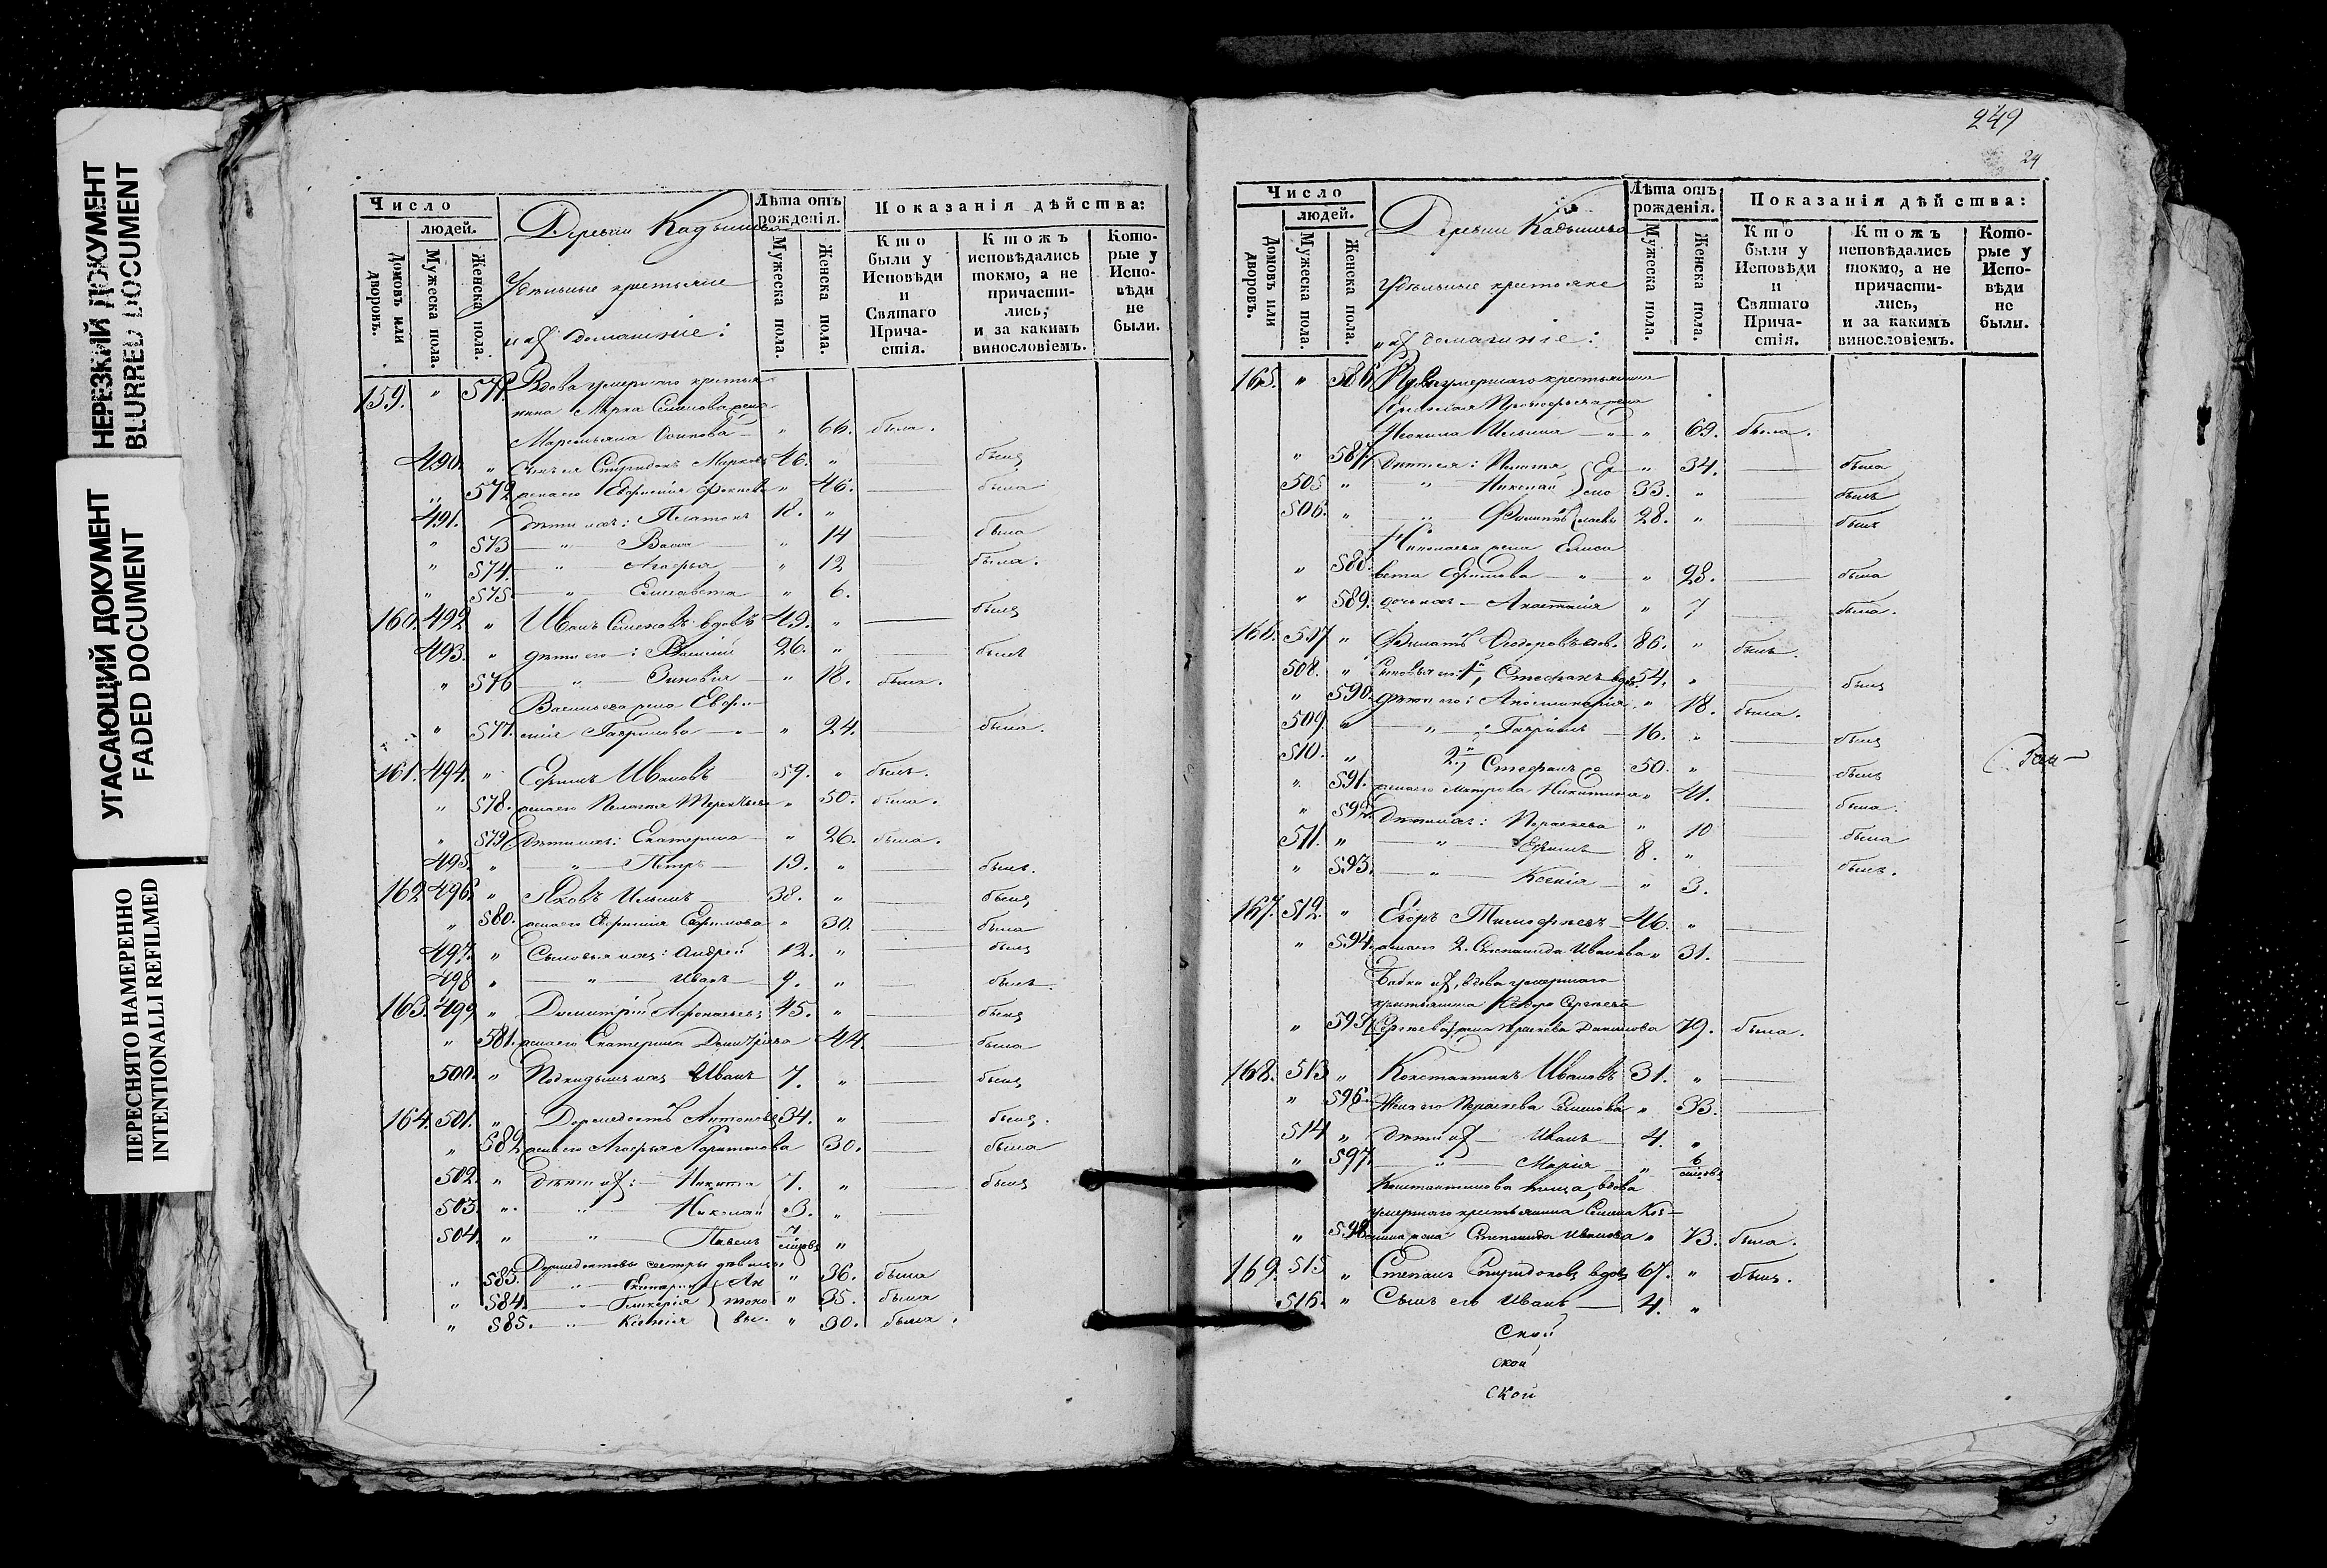 НЕРЕЗКИЙ ДОКУМЕНТ
BLURRED DOCUMENT
УГАСАЮЩИЙ ДОКУМЕНТ
FADED DOCUMENT
ПЕРЕСНЯТО НАМЕРЕННО
INTENTIONALLI REFILMED
Число
людей.
Домовъ или дворовъ.
Мужеска пола.
Женска пола.
Деревни Кадышева
Удѣльные крестьяне
и ихъ домашніе:
Лѣта отъ рожденія.
Мужеска пола.
Женска пола.
Показанія дѣйства:
Кто были у Исповѣди и Святаго Причастія.
Ктожъ исповѣдались токмо, а не причастились, и за какимъ винословіемъ.
Которые у Исповѣди не были.
159. " 571. Вдова умершаго крестья-
нина Марка Семенова жена
Осипова " 66. была.
490. " сынъ ея Спиридонъ Марковъ 46. " — былъ
" 572 жена его " 46. — была
491. " дѣти ихъ: Платонъ 18. "
" 573 — " — Васса " 14 — была
" 574. — " — Агафья " 12 — была.
" 575. — " — Елисавета " 6.
160. 492 " Иванъ Семеновъ вдовъ 49. " — былъ
493. " дѣти его: Василій 26. " — былъ
" 576 — " — Зиновія " 18. была.
Васильева жена Евфи-
" 577. мія Гаврилова " 24. была.
161. 494. " Ефимъ Ивановъ 59. " былъ.
" 578. жена его Пелагея Терентьева " 50. была.
" 579 дѣти ихъ: Екатерина " 26. была.
495. " — " — Петръ 19. " — былъ.
162 496. " Яковъ Ильинъ 38. " — былъ
" 580. жена его Ефимія Ефимова " 30. — была
497. " Сыновья ихъ: Андрей 12. " — былъ
498 " — " — Иванъ 9. " — былъ.
163. 499 " Димитрій Афанасьевъ 45. " — былъ
" 581. жена его Екатерина Димитріева 44. — была
500. " Подкидышъ ихъ Иванъ 7. " — былъ
164. 501. " Дормедонтъ Антоновъ 34. " — былъ.
" 582 жена его Агафья Харитонова 30. — была
502. " дѣти ихъ: Никита 7. " — былъ
503. " — " — Николай 3. " —
504. " — " — Павелъ 7 мѣсяцовъ "
Дормедонтовы сестры дѣвицы:
" 583. — " — Екатерина Ан " 36. была
" 584. — " — Гликерія тоно " 35. была
" 585. — " — Ксенія вы. " 30. была.
249
24
Число
людей.
Домовъ или дворовъ.
Мужеска пола.
Женска пола.
Деревни Кадышева
Удѣльные крестьяне
и ихъ домашніе:
Лѣта отъ рожденія.
Мужеска пола.
Женска пола.
Показанія дѣйства:
Кто были у Исповѣди и Святаго Причастія.
Ктожъ исповѣдались токмо, а не причастились, и за какимъ винословіемъ.
Которые у Исповѣди не были.
165. " 586. Вдова умершаго крестьянина
Прокофьева жена
Ильина " 69. была.
" 587. Дѣти ея: Пелагея " 34. — была
505 " " Николай 33. " — былъ
506. " " Филиппъ 28. " — былъ
Николаева жена Елиса
" 588. вета Ефимова " 28. — была
" 589. дочь ихъ — Анастасія " 7 — была.
166. 507 " Филатъ Ѳедоровъ вдов. 86. " былъ.
508. " Сыновья его: 1й, Стефанъ вдов. 54. " — былъ
" 590. дѣти его: " 18. была.
509. " — " — Гавріилъ 16. " — былъ
510. " 2й, Стефанъ же 50. " — былъ
" 591. жена его Матрона Никитина " 41. — была.
" 592. дѣти ихъ: Параскева " 10 — была
511. " — " — Ефимъ 8. " — былъ.
" 593. — " — Ксенія " 3.
167. 512. " Егоръ Тимофеевъ 46. " —
" 594. жена его 2. Степанида Иванова " 31. —
Бабка ихъ, вдова умершаго
крестьянина Сергеева
" 595. жена Данилова 79. была.
168. 513 " Константинъ Ивановъ 31. " —
" 596. Жена его Параскева Семенова " 33. —
514 " дѣти ихъ — Иванъ 4. "
" 597. — " — Марія " 6 мѣсяцовъ
Константинова теща, вдова
умершаго крестьянина Семена Коз-
" 598. мина жена Степанида Иванова " 73. была.
169. 515 " Степанъ Спиридоновъ вдовъ 67. " былъ.
516. " Сынъ его Иванъ 4. "
ской
ской
ской